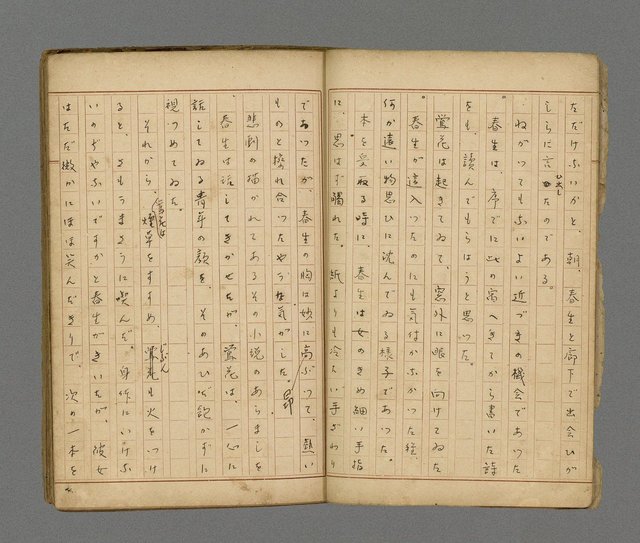 ただけないかと、朝、春生と廊下で出会ひが
しらに言つたのである。
ねがつてもないよい近づきの機会であつた
春生は、序でに此の宿へきてから書いた詩
をも、読んでもらはうと思つた。
鶯花は起きてゐて、窓外に眼を向けてゐた
春生が這入つたのにも気付かなかつた程、
何か遠い物思ひに沈んでゐる様子であつた。
本を受取る時に、春生は女のきめ細い手指
に、思はず觸れた。紙よりも冷たい手ざわり
であつたが、春生の胸は妙に高ぶつて、熱い
ものと擦れ合つたやうな気がした。
悲劇の描かれてあるその小説のあらましを
春生は話してきかせたが、鶯花は、一心に
話してゐる青年の顔を、そのあひだ飽かずに
視つめてゐた。
それから、鶯花は煙草をすすめ、じぶんも火をつけ
ると、さもうまさうに喫んだ。身体にいけな
いのぢやないですかと春生がきいたが、彼女
はただ微かにほほ笑んだきりで、次の一本を